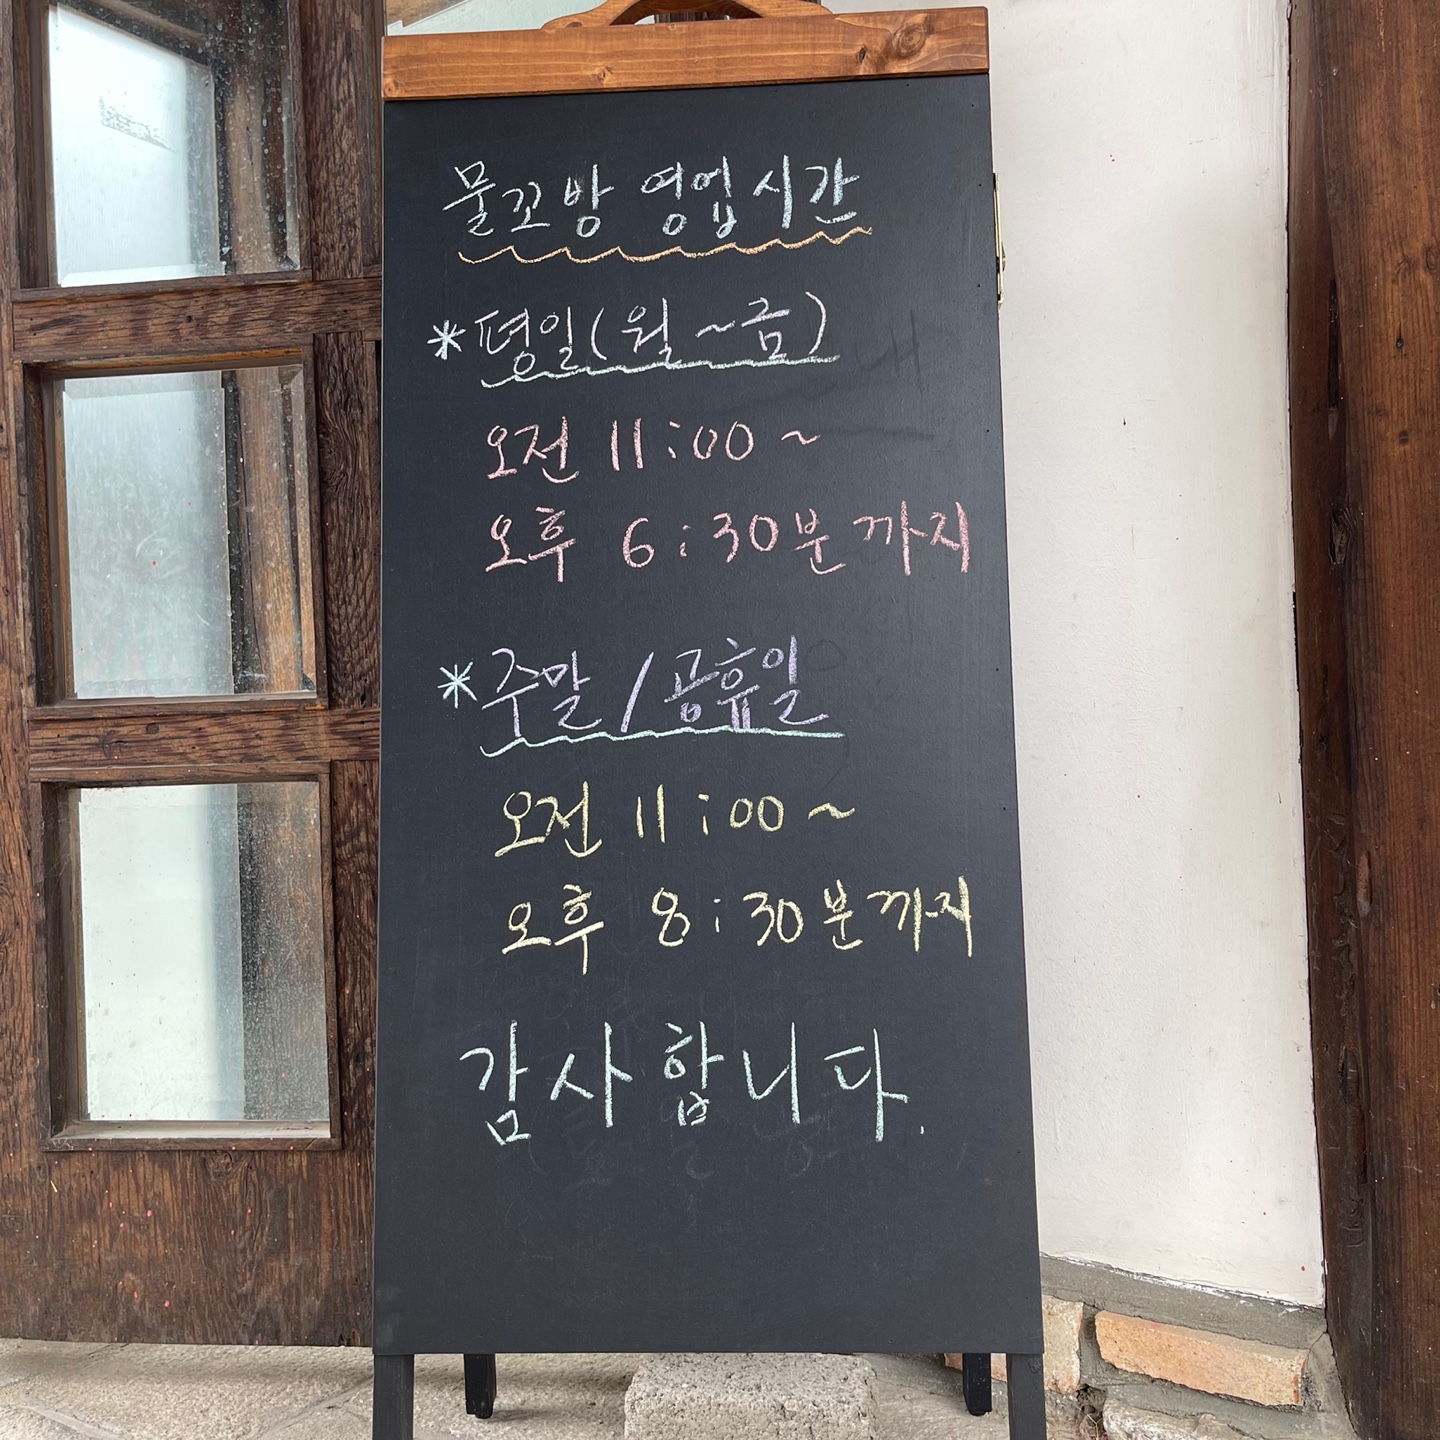 물꼬방 영업시간
*평일(월~금)
오전 11:00~
오후 6:30분까지
*주말/공휴일
오전 11:00~
오후 8:30분까지
감사합니다.